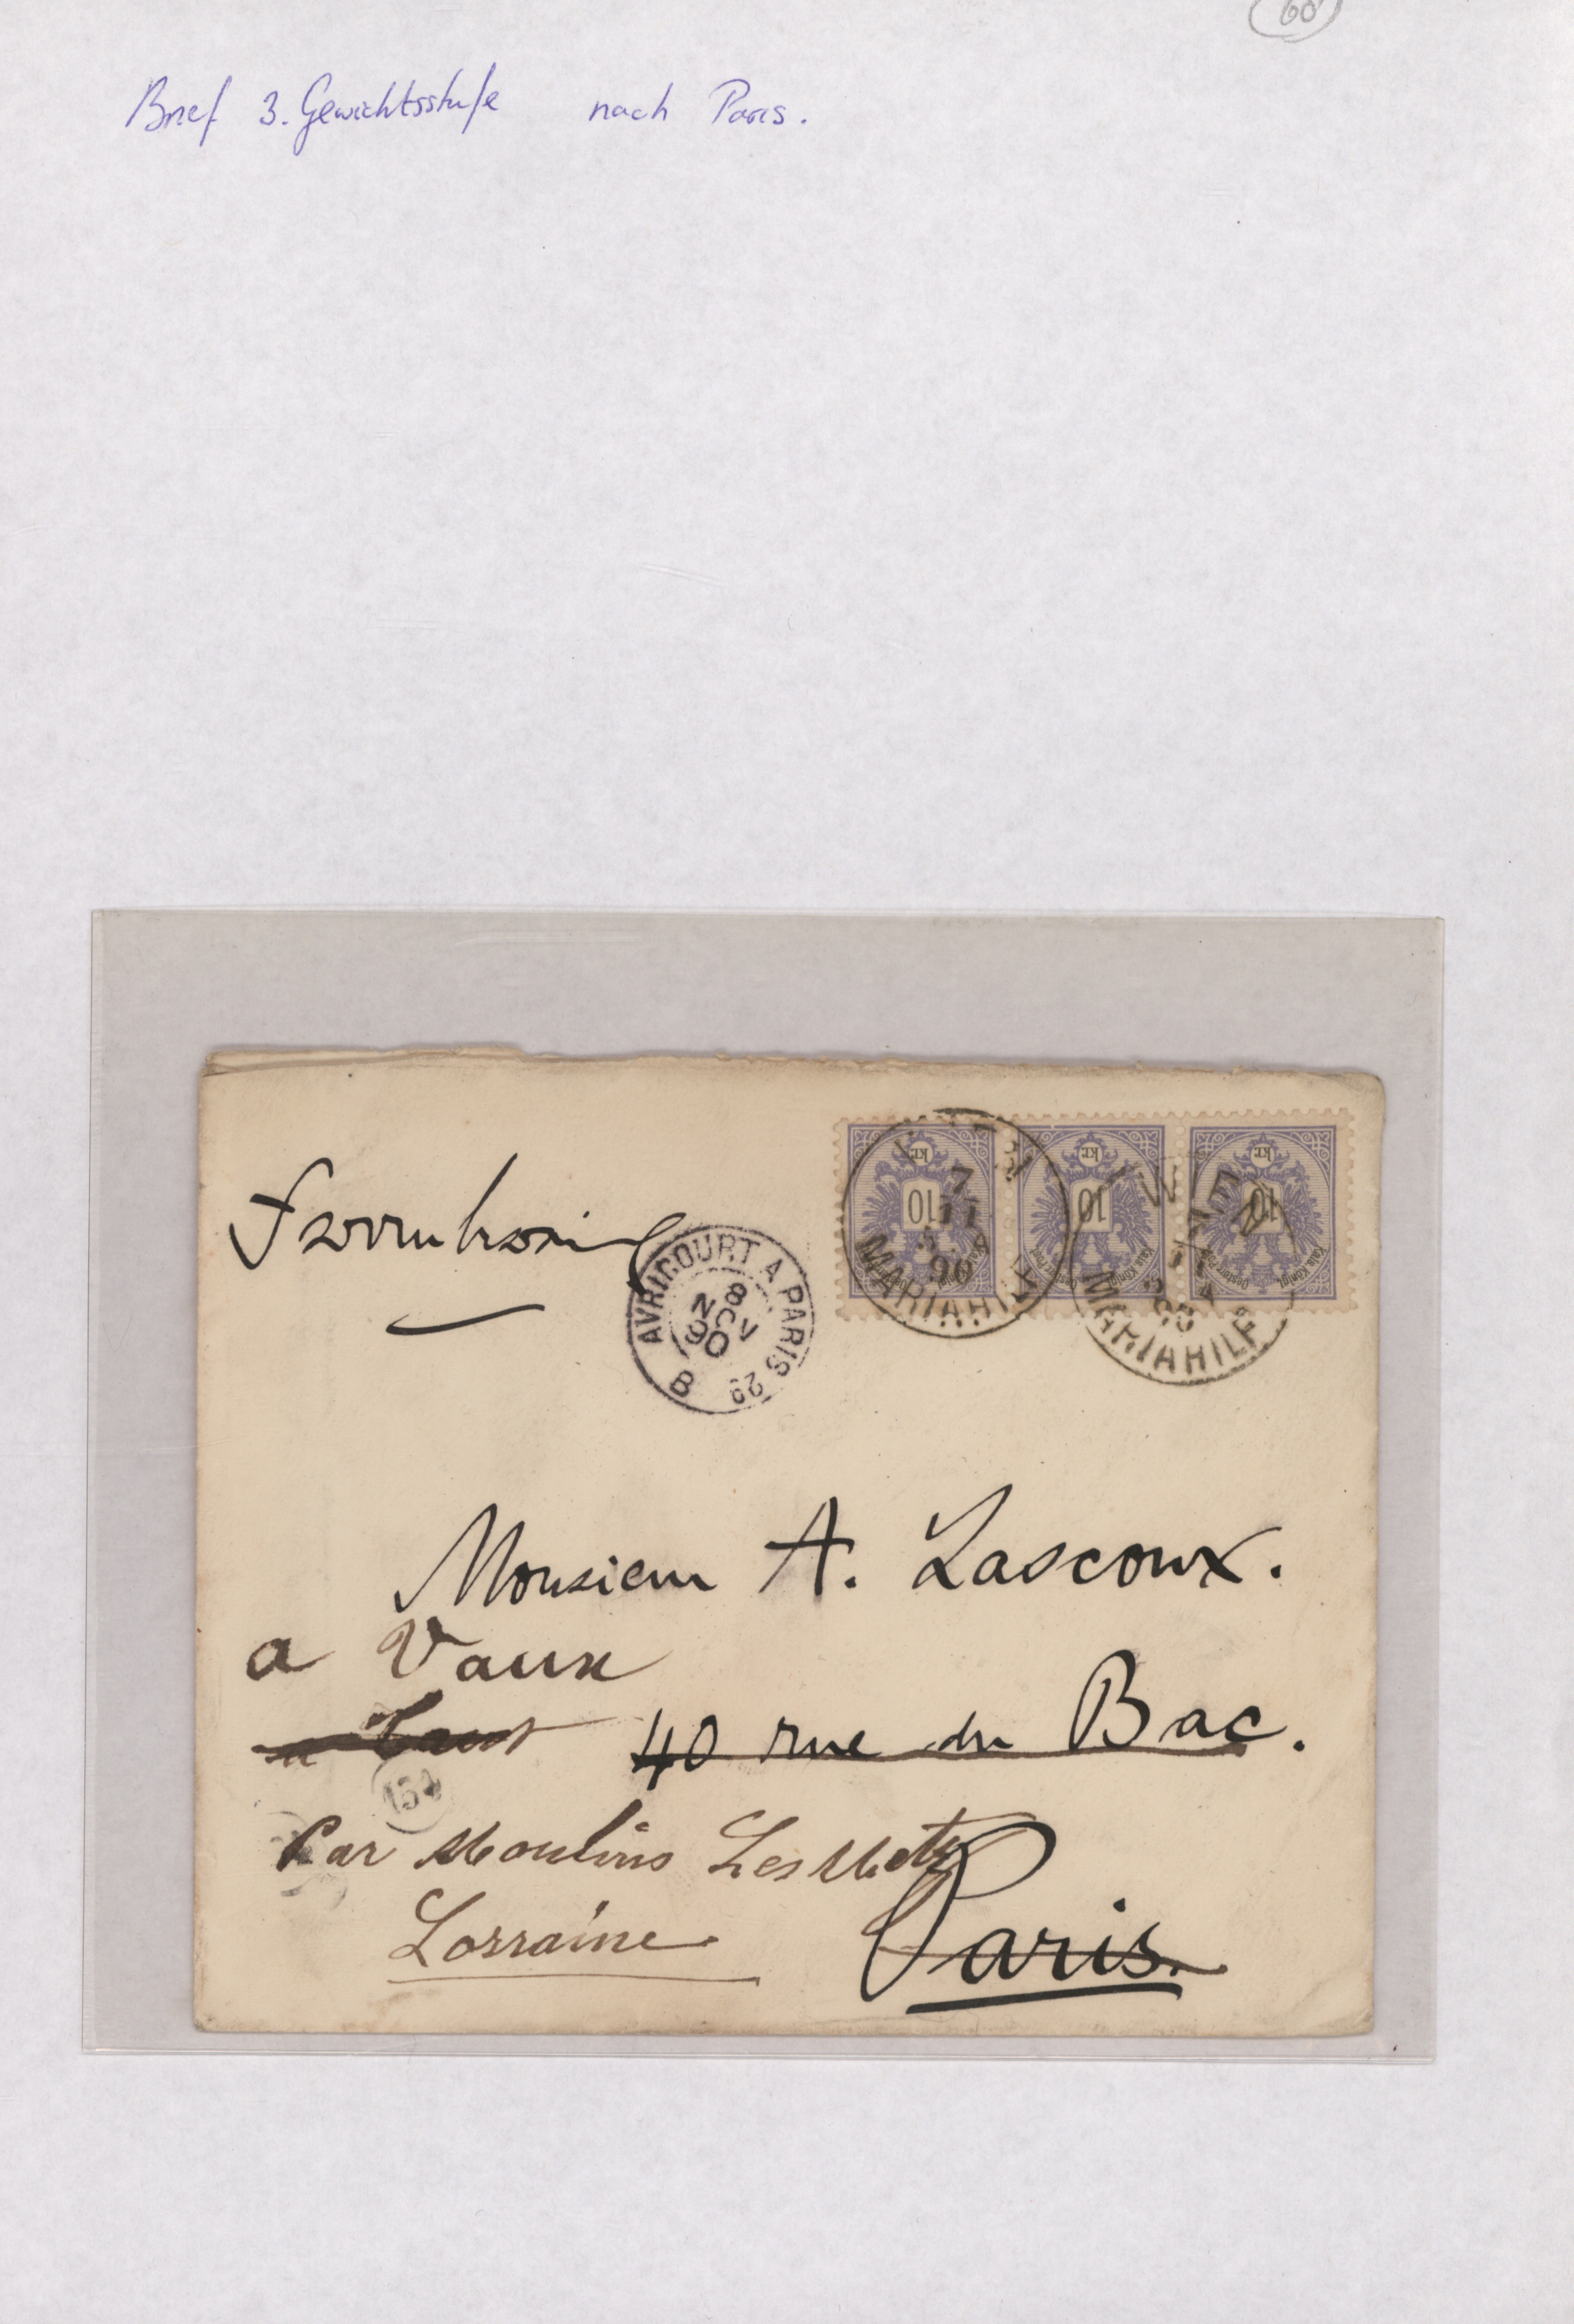 60
Brief 3. Gewichtsstufe nach Paris.
kr. 10
kr. 10
kr. 10
WIEN
7/11
90
MARIAHILF
WIEN
MARIAHILF
AVRICOURT A PARIS 29
8
NOV
90
B
Monsieur A. Lascoux.
a Vaux
40 rue du Bac.
154
Par Moulins Les Metz
Lorraine
Paris.